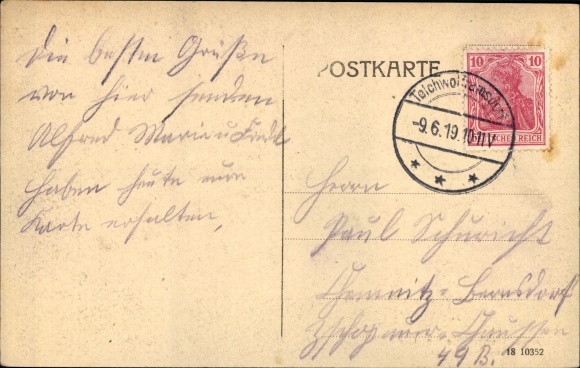 Die besten Grüße
von hier senden
Alfred Marie u
haben heute eure
Karte erhalten,
POSTKARTE
10 10
DEUTSCHES REICH
Teichwolframsdorf
-9.6.19.10-11V
Herrn
Paul Schuricht
Chemnitz-Bernsdorf
Zschopauer-Chaussee
49B.
18 10352